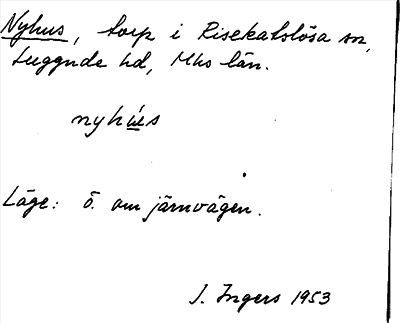 Nyhus, torp i Risekatslösa sn,
Luggude hd, Mhs län.
nyhús
Läge: ö. om järnvägen.
J. Ingers 1953